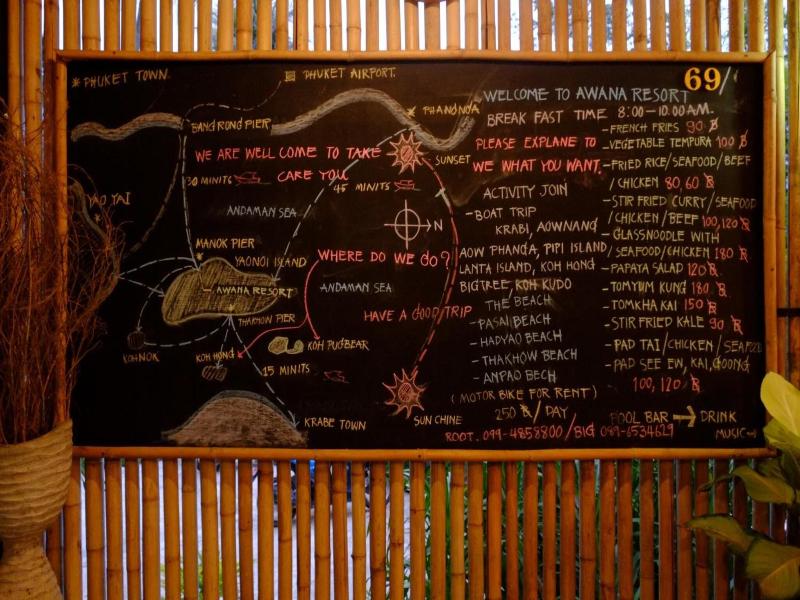 69/
* PHUKET TOWN.
PHUKET AIRPORT.
BANG RONG PIER
* PHANGNGA
WE ARE WELL COME TO TAKE
CARE YOU
SUNSET
30 MINITS
45 MINITS
YAO YAI
ANDAMAN SEA
N
MANOK PIER
YAONOI ISLAND
WHERE DO WE GO?
AWANA RESORT
ANDAMAN SEA
THAKHOW PIER
HAVE A GOOD TRIP
KOH NOK
KOH HONG
KOH PUGBEAR
15 MINITS
KRABE TOWN
SUN CHINE
WELCOME TO AWANA RESORT
BREAK FAST TIME 8:00-10.00 AM.
PLEASE EXPLANE TO
WE WHAT YOU WANT.
ACTIVITY JOIN
-BOAT TRIP
KRABI, AOWNANG
AOW PHANGA, PIPI ISLAND
LANTA ISLAND, KOH HONG
BIGTREE, KOH KUDO
THE BEACH
-PASAI BEACH
-HADYAO BEACH
-THAKHOW BEACH
-ANPAO BECH
(MOTOR BIKE FOR RENT)
250 ฿/DAY
-FRENCH FRIES 90 ฿
-VEGETABLE TEMPURA 100 ฿
-FRIED RICE/SEAFOOD/BEEF
/CHICKEN 80,60 ฿
-STIR FRIED CURRY/SEAFOOD
/CHICKEN/BEEF 100,120 ฿
-GLASSNOODLE WITH
/SEAFOOD/CHICKEN 180 ฿
-PAPAYA SALAD 120 ฿
-TOMYUM KUNG 180 ฿
-TOMKHA KAI 150 ฿
-STIR FRIED KALE 90 ฿
-PAD TAI/CHICKEN/SEAFOOD
-PAD SEE EW, KAI, GOONG
100, 120 ฿
POOL BAR → DRINK
MUSIC
ROOT. 099-4858800/BIG 089-6534629